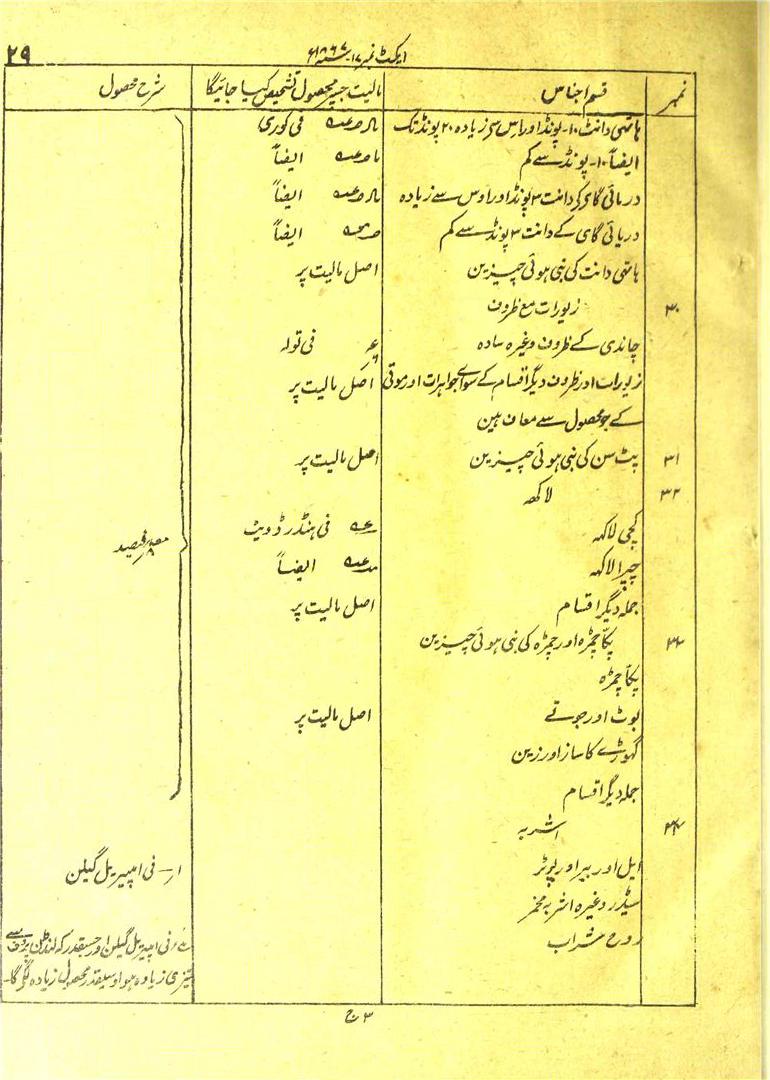 ۲۹
ایکٹ نمبر ۱۷ سنہ ۱۸۶۷ء
نمبر قسم اجناس مالیت جسپر محصول تشخیص کیا جائیگا شرح محصول
ہاتھی دانت ۱۰ پونڈ اور اس سی زیادہ ۲۰ پونڈ تک فی کوری
ایضاً ۱۰ پونڈ سے کم ایضاً
دریائی گای کی دانت ۳ پونڈ اور اوس سے زیادہ ایضاً
دریائی گای کے دانت ۳ پونڈ سے کم ایضاً
ہاتھی دانت کی بنی ہوئی چیزین اصل مالیت پر
۳۰ زیورات مع ظروف
چاندی کے ظروف وغیرہ سادہ فی تولہ
زیورات اور ظروف دیگر اقسام کے سوای جواہرات اور موتی اصل مالیت پر
کے جو محصول سے معاف ہین
۳۱ پٹ سن کی بنی ہوئی چیزین اصل مالیت پر
۳۲ لاکھ
کچی لاکہہ فی ہنڈرڈ ویٹ
چپرا لاکہہ ایضاً
فیصد
جملہ دیگر اقسام اصل مالیت پر
۳۳ پکا چمڑہ اور چمڑہ کی بنی ہوئی چیزین
پکا چمڑہ
بوٹ اور جوتے اصل مالیت پر
گھوڑے کا ساز اور زین
جملہ دیگر اقسام
۳۴ اشربہ
ایل اور بیر اور پورٹر ۱ر فی امپیریل گیلن
سیڈر وغیرہ اشربہ مخمر
روح شراب فی امپیریل گیلن اور جسقدر کہ لندن پروف سے
تیزی زیادہ ہو اوسیقدر محصول زیادہ لگی گا۔
۳ ج